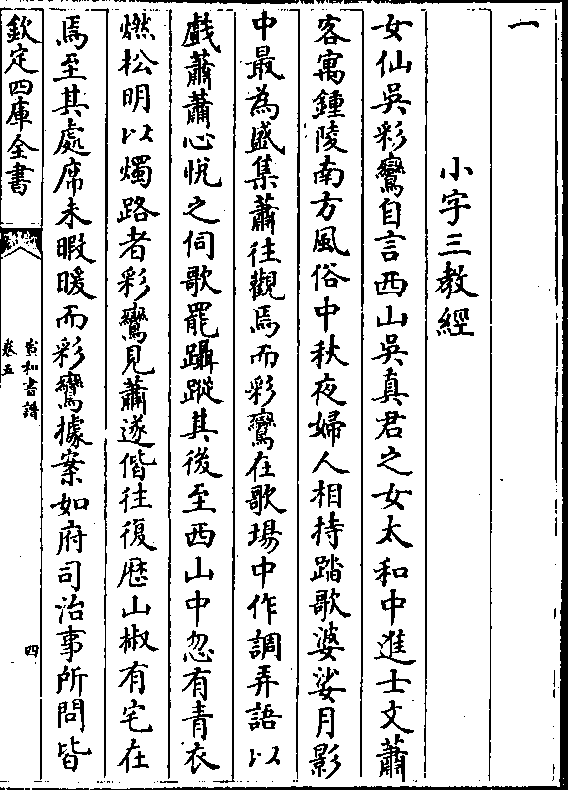 一
小字三教經
女仙吳彩鸞自言西山吳真君之女太和中進士文蕭
客寓鍾陵南方風俗中秋夜婦人相持踏歌婆娑月影
中最為盛集蕭往觀焉而彩鸞在歌場中作調弄語以
戲蕭蕭心悅之伺歌罷躡蹤其後至西山中忽有青衣
燃松明以燭路者彩鸞見蕭遂偕往復歷山椒有宅在
焉至其處席未暇暖而彩鸞據案如府司治事所問皆
欽定四庫全書
宣和書譜
卷五
四